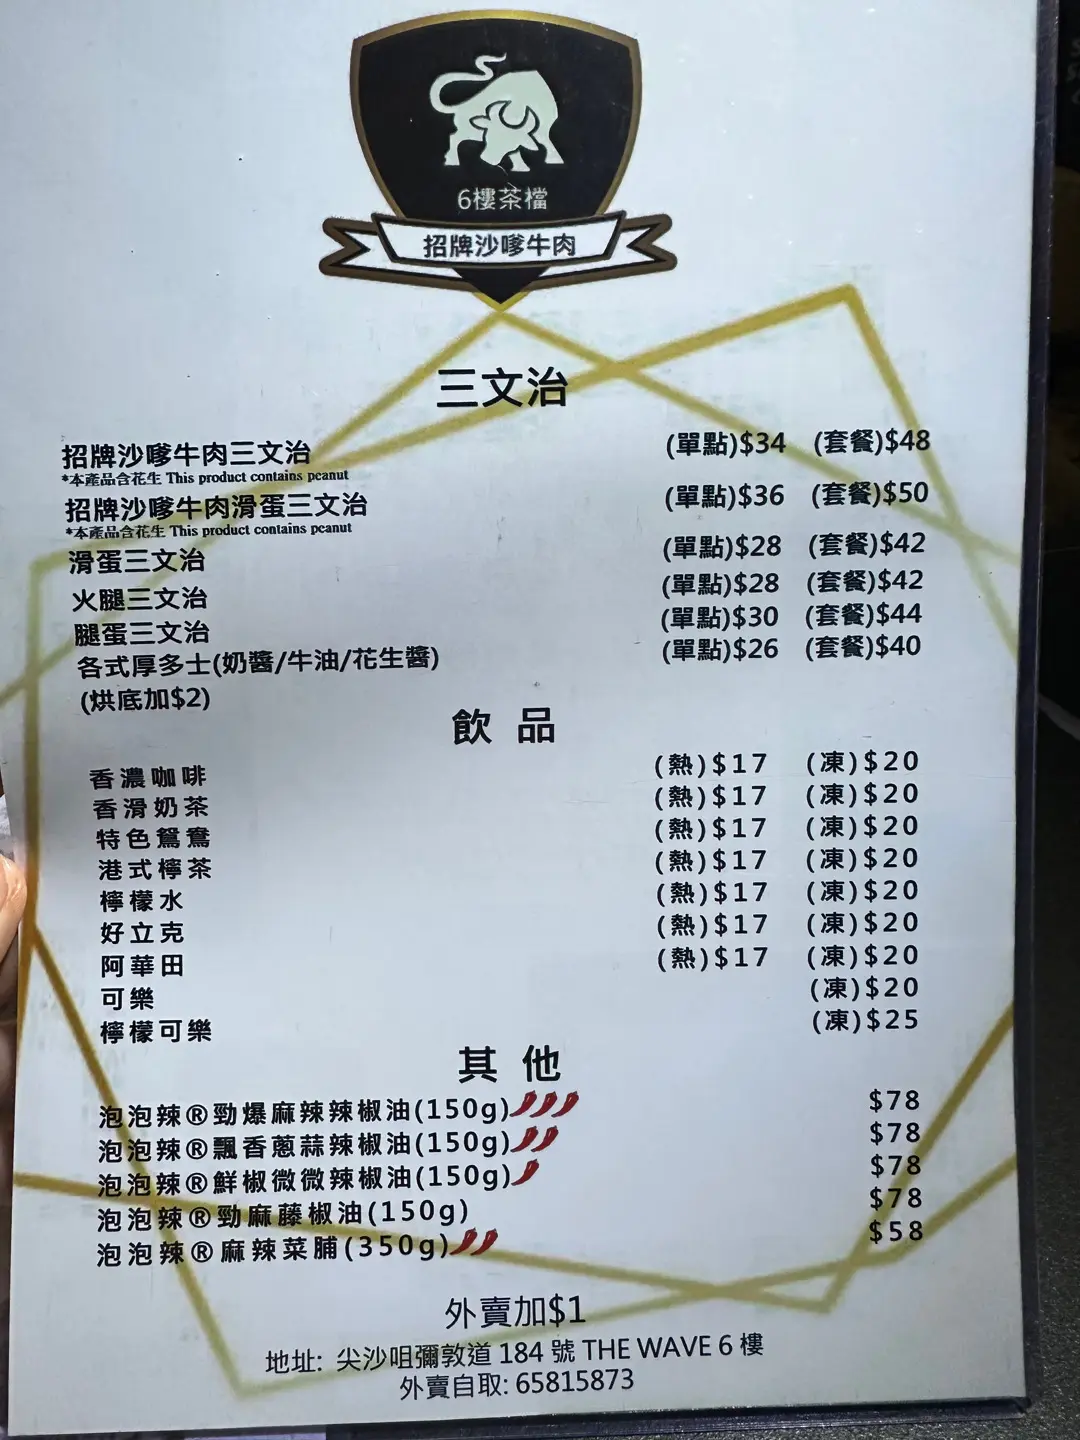 6樓茶檔
招牌沙嗲牛肉
三文治
招牌沙嗲牛肉三文治 (單點)$34 (套餐)$48
*本產品含花生 This product contains peanut
招牌沙嗲牛肉滑蛋三文治 (單點)$36 (套餐)$50
*本產品含花生 This product contains peanut
滑蛋三文治 (單點)$28 (套餐)$42
火腿三文治 (單點)$28 (套餐)$42
腿蛋三文治 (單點)$30 (套餐)$44
各式厚多士(奶醬/牛油/花生醬) (單點)$26 (套餐)$40
(烘底加$2)
飲品
香濃咖啡 (熱)$17 (凍)$20
香滑奶茶 (熱)$17 (凍)$20
特色鴛鴦 (熱)$17 (凍)$20
港式檸茶 (熱)$17 (凍)$20
檸檬水 (熱)$17 (凍)$20
好立克 (熱)$17 (凍)$20
阿華田 (熱)$17 (凍)$20
可樂 (凍)$20
檸檬可樂 (凍)$25
其他
泡泡辣®勁爆麻辣辣椒油(150g) $78
泡泡辣®飄香蔥蒜辣椒油(150g) $78
泡泡辣®鮮椒微微辣椒油(150g) $78
泡泡辣®勁麻藤椒油(150g) $78
泡泡辣®麻辣菜脯(350g) $58
外賣加$1
地址: 尖沙咀彌敦道 184 號 THE WAVE 6 樓
外賣自取: 65815873